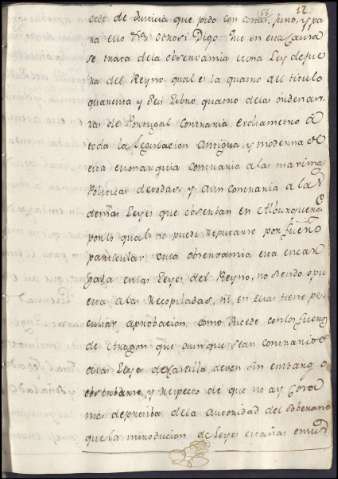 12.
de Justicia que pido con costas, juro, y pa
ra ello &a. Otrosi Digo: Que en esta Causa
se trata dela observancia de una Ley defue
ra del Reyno qual es la quarta del titulo
quarenta y seis libro quarto delas ordenan
zas de Portugal contraria
toda la legislacion Antigua y moderna de
esta Monarquia contraria alas maximas
Politicas de estado y aun contraria a las
demas Leyes que observan en Alburquerque
por lo qual no puede reputarse por fuero
particular, cuia observancia este encar
gada en las Leyes del Reyno, no siendo
alas Recopiladas, ni en ellas tiene pe
culiar aprobacion, como sucede con los fueros
de Aragon que aunque sean contrarios
alas Leyes de Castilla deven sin embargo
observarse, y respecto de que no ay cosa
mas depresiba dela Autoridad del Soberano
que la introducion de Leyes estrañas